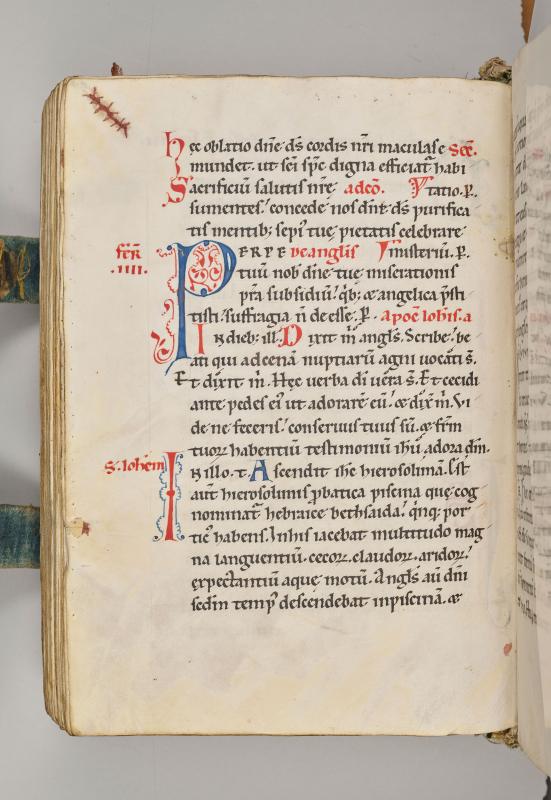 hęc oblatio dn̄e ds̄ cordis nr̄i maculas e Sec̄.
mundet. ut sc̄i sp̄c digna efficiat᷑ habi
Sacrificiū salutis nr̄ę adcō. tatio. P.
sumentes. concede nos dn̄e ds̄ purifica
tis mentib; sepi᷑ tuę pietatis celebrare
ferr̄ PERPE de anglis misteriū. P.
.IIII. tuū nob̄ dn̄e tuę miserationis
pr̄a subsidiū. qb; & angelica p̄sti
tisti suffragia n̄ deesse. P. apoc̄ Ioh̄is. a
IN dieb; ill. Dixit m̄ angl̄s. Scribe. be
ati qui ad cenā nuptiarū agni uocati s̄.
Et dixit m̄. Hęc uerba dī uera s̄. Et cecidi
ante pedes ei᷒ ut adorarē eū. & dix̄ m̄. Vi
de ne feceris. conseruus tuus sū. & fr̄m
tuoꝝ habentiū testimoniū ihū. adora dm̄.
S. Ioh̄em IN illo. t. Ascendit ihc hierosolimā. Ēst
aut̄ hierosolimis p̄batica piscina que cog
nominat᷑ hebraice bethsaida. qnq; por
tic᷒ habens. In his iacebat multitudo mag
na languentiū. cecoꝝ. claudoꝝ. aridoꝝ.
expectantiū aque motū. Angl̄s au᷑ dn̄i
scd̄m temp᷒ descendebat in piscinā. &